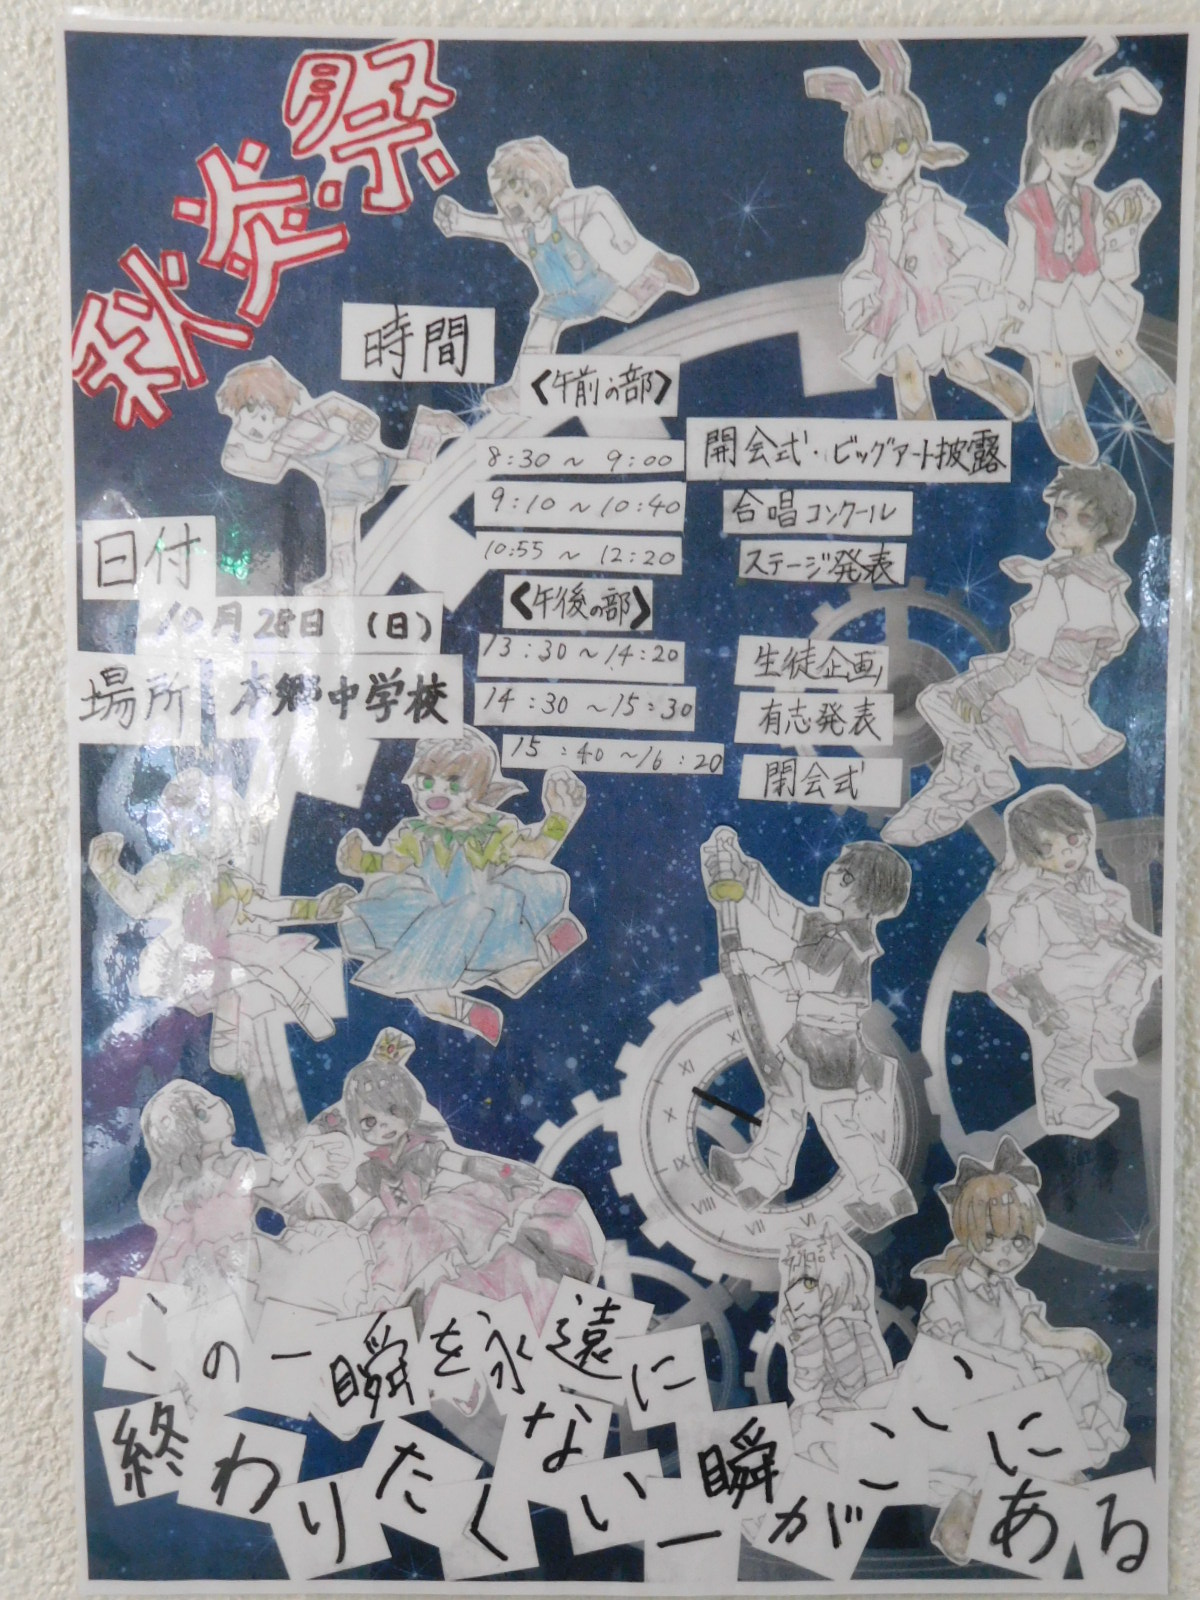 秋炎祭
時間
<午前の部>
8:30 ~ 9:00 開会式・ビッグアート披露
9:10 ~ 10:40 合唱コンクール
10:55 ~ 12:20 ステージ発表
<午後の部>
13:30 ~ 14:20 生徒企画
14:30 ~ 15:30 有志発表
15:40 ~ 16:20 閉会式
日付
10月28日(日)
場所 本郷中学校
この一瞬を永遠に
終わりたくない一瞬がここにある
XII
XI
X
IX
VIII
VII
VI
V